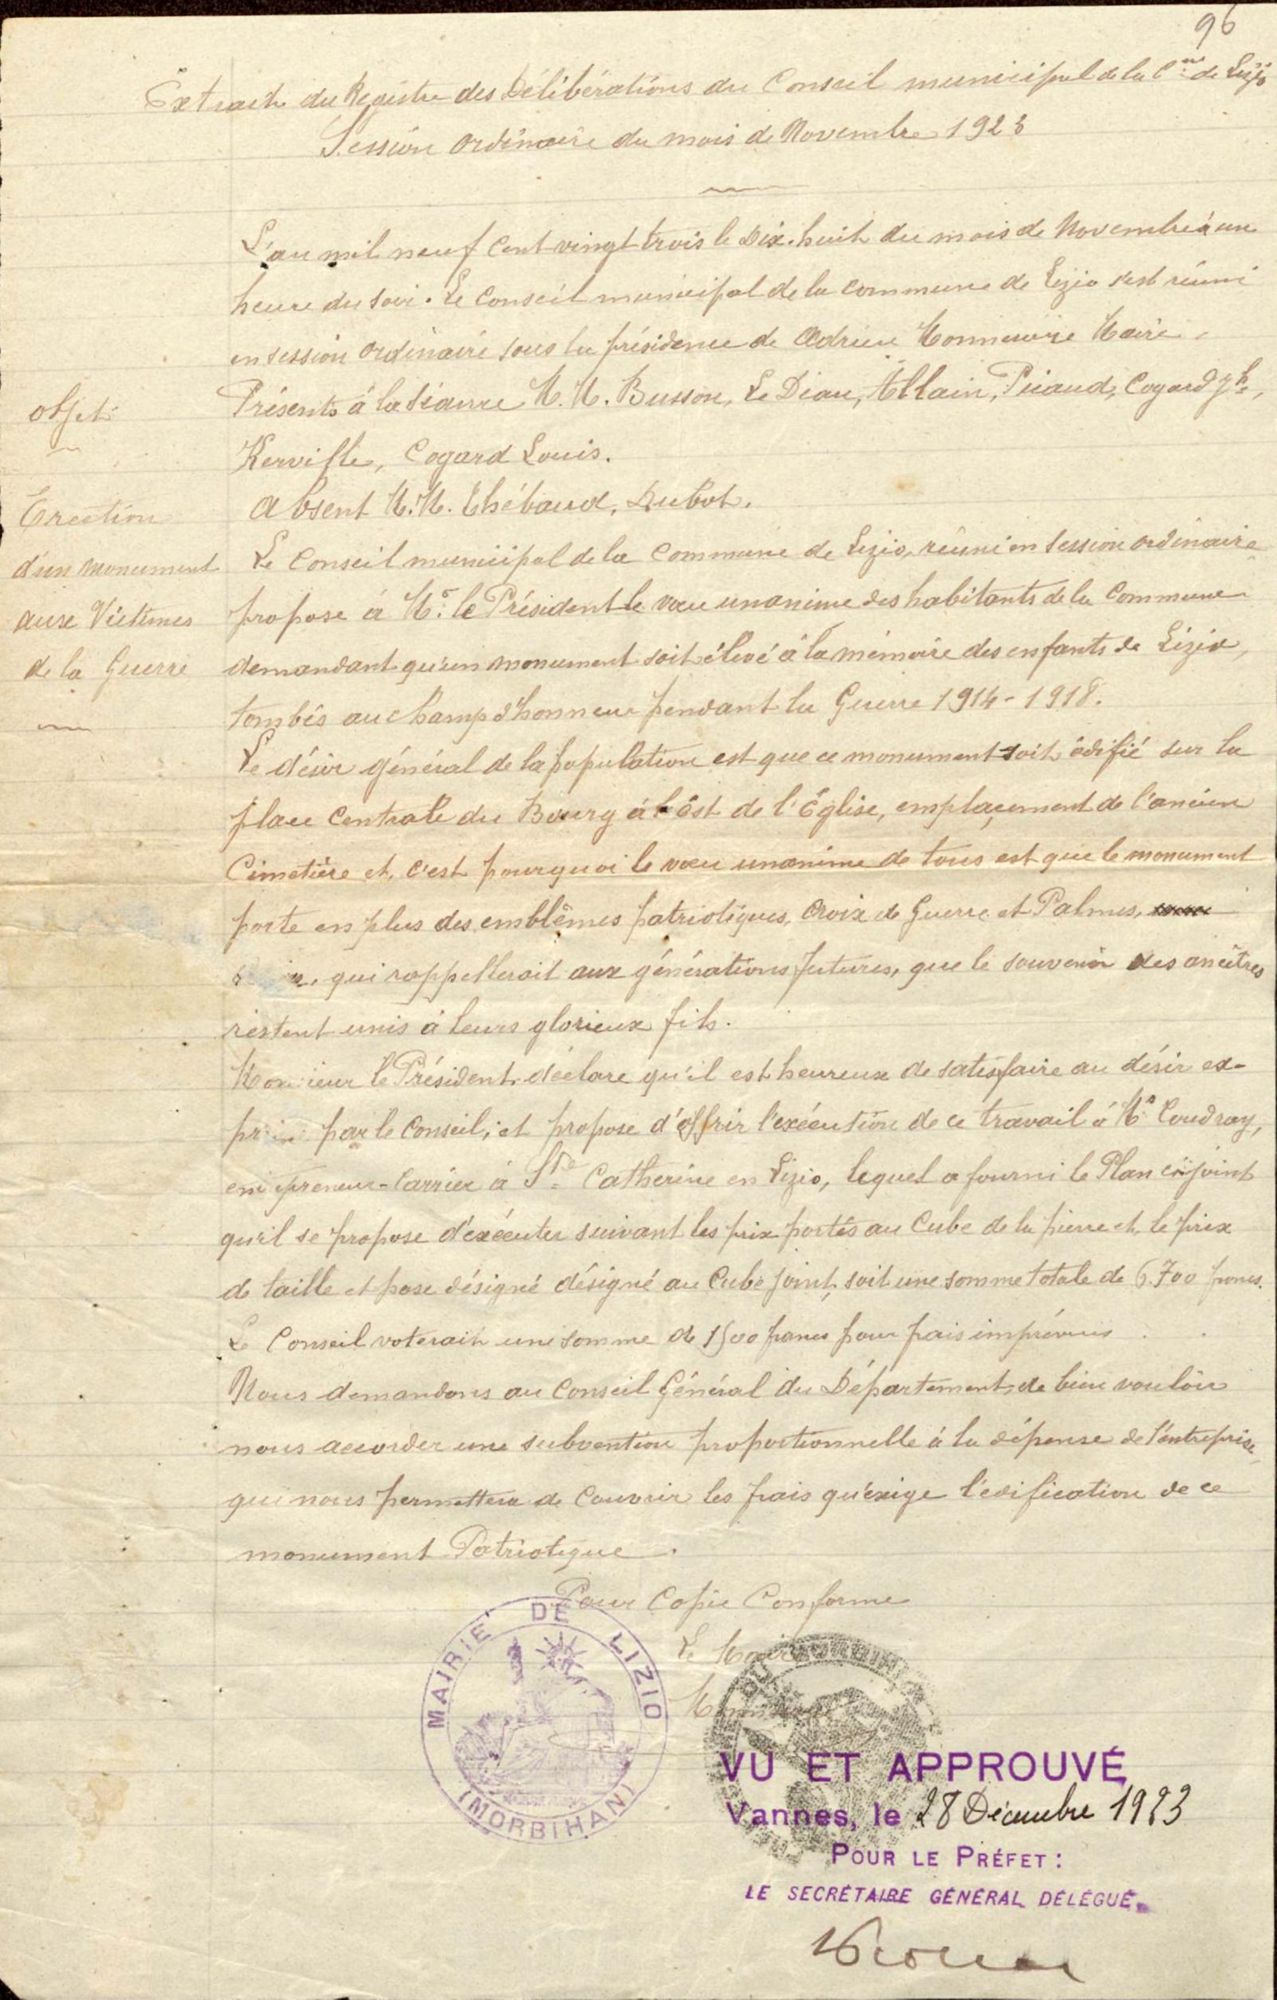 96
Extrait du Registre des Délibérations du Conseil municipal de la Cne de Lizio
Session ordinaire du mois de Novembre 1923
L'an mil neuf cent vingt trois le Dix-huit du mois de Novembre à une
heure du soir. Le Conseil municipal de la commune de Lizio s'est réuni
en session ordinaire sous la présidence de Adrien Monnerie Maire.
objet
Présents à la séance M.M. Busson, Le Diau, Allain, Piaud, Coyard Jh,
Kerviche, Coyard Louis.
Absent M.M. Thébaud, Dubot.
Erection
d'un monument
aux Victimes
de la Guerre
Le Conseil municipal de la Commune de Lizio, réuni en session ordinaire
propose à Mr le Président le vœu unanime des habitants de la Commune
demandant qu'un monument soit élevé à la mémoire des enfants de Lizio,
tombés au champ d'honneur pendant la Guerre 1914-1918.
Le désir général de la population est que ce monument soit édifié sur la
place Centrale du Bourg à l'Est de l'Église, emplacement de l'ancien
Cimetière et, c'est pourquoi le vœu unanime de tous est que le monument
porte en plus des emblêmes patriotiques, Croix de Guerre et Palmes,
qui rappellerait aux générations futures, que le souvenir des ancêtres
restent unis à leurs glorieux fils.
Monsieur le Président déclare qu'il est heureux de satisfaire au désir ex-
primé par le Conseil, et propose d'offrir l'exécution de ce travail à Mr Coudray,
entrepreneur-Carrier à Ste Catherine en Lizio, lequel a fourni le Plan ci joint
qu'il se propose d'exécuter suivant les prix portés au Cube de la pierre et le prix
de taille et pose désigné désigné au Cube joint, soit une somme totale de 6.700 francs.
Le Conseil voterait une somme de 1500 francs pour frais imprévus
Nous demandons au Conseil Général du Département de bien vouloir
nous accorder une subvention proportionnelle à la dépense de l'entreprise,
qui nous permettra de couvrir les frais qu'exige l'édification de ce
monument Patriotique.
Pour Copie Conforme
Le Maire
MAIRIE DE LIZIO
(MORBIHAN)
VU ET APPROUVÉ
Vannes, le 28 Décembre 1923
POUR LE PRÉFET :
LE SECRÉTAIRE GÉNÉRAL DÉLÉGUÉ,